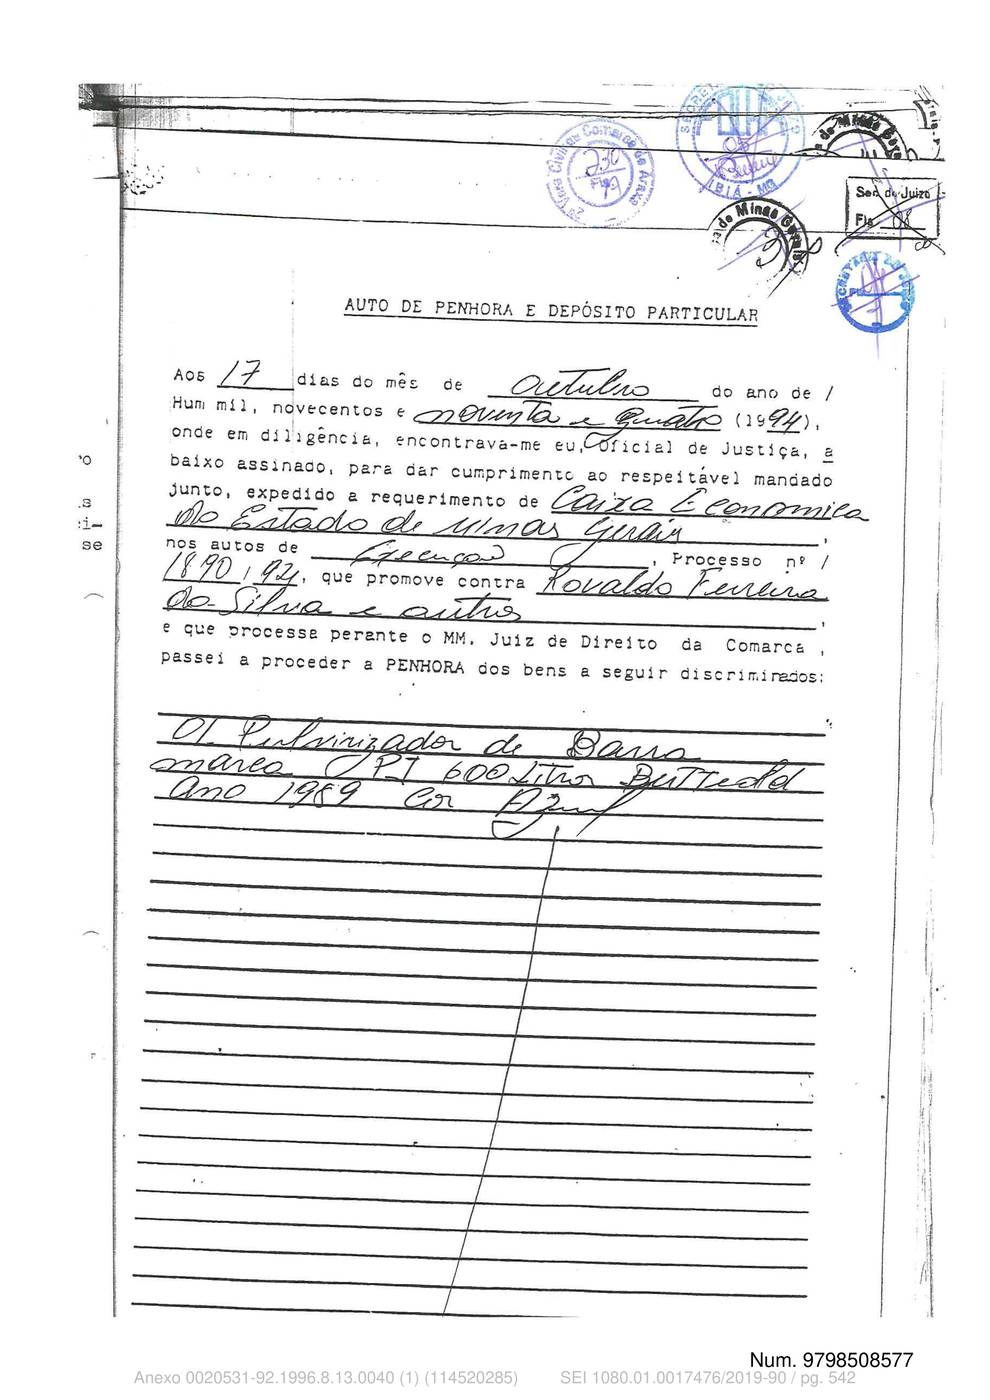 2ª Vara Cível da Comarca de Araxá
230
Fls
IBIÁ - MG
05
de Minas Gerais
Sec. do Juizo
Fls 08
AUTO DE PENHORA E DEPÓSITO PARTICULAR
Aos 17 dias do mês de outubro do ano de /
Hum mil, novecentos e noventa e quatro (1994),
onde em diligência, encontrava-me eu, Oficial de Justiça, a
baixo assinado, para dar cumprimento ao respeitável mandado
junto, expedido a requerimento de Caixa Economica
do Estado de Minas Gerais,
nos autos de Execução, Processo nº /
1890/92, que promove contra Rovaldo Ferreira
da Silva e outros,
e que processa perante o MM. Juiz de Direito da Comarca,
passei a proceder a PENHORA dos bens a seguir discriminados:
01 Pulvirizador de Barra
marca PJ 600 Litros
Ano 1989 Cor Azul
Num. 9798508577
Anexo 0020531-92.1996.8.13.0040 (1) (114520285) SEI 1080.01.0017476/2019-90 / pg. 542